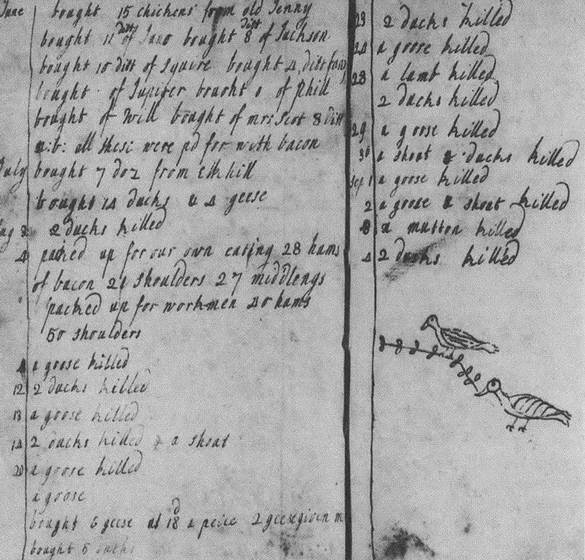 June bought 15 chickens from old Jenny
bought 11 ditt of Jano bought 8 ditt of Jackson
bought 10 ditt of Squire bought 4 ditt from
bought of Jupiter bought of phill
bought of Will bought of mrs Scot 8 ditt
all these were pd for with bacon
July bought 7 doz from elkhill
bought 14 ducks & 4 geese
aug 3 2 ducks killed
4 packed up for our own eating 28 hams
of bacon 21 shoulders 27 middlengs
packed up for workmen 40 hams
50 shoulders
a goose killed
12 2 ducks killed
13 a goose killed
14 2 ducks killed & a shoat
20 a goose killed
a goose
bought 6 geese at 18d a peice 2 geese given m
bought 5 ducks
23 2 ducks killed
24 a goose killed
28 a lamb killed
2 ducks killed
29 a goose killed
30 a shoat & ducks killed
sep 1 a goose killed
2 a goose & shoat killed
a mutton killed
4 2 ducks killed